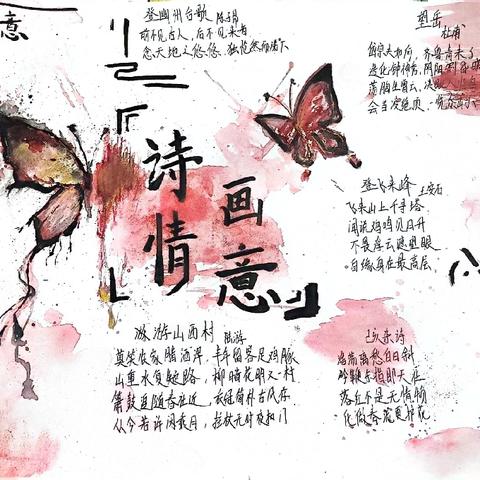 意
登幽州台歌 陈子昂
前不见古人,后不见来者
念天地之悠悠,独怆然而涕下
望岳
杜甫
岱宗夫如何,齐鲁青未了
造化钟神秀,阴阳割昏晓
荡胸生曾云,决眦入
会当凌绝顶,一览众
诗情
画意
登飞来峰 王安石
飞来山上千寻塔
闻说鸡鸣见日升
不畏浮云遮望眼
自缘身在最高层
游游山西村 陆游
莫笑农家腊酒浑,丰年留客足鸡豚
山重水复疑无路,柳暗花明又一村
箫鼓追随春社近,衣冠简朴古风存
从今若许闲乘月,拄杖无时夜扣门
己亥杂诗
浩荡离愁白日斜
吟鞭东指即天涯
落红不是无情物
化作春泥更护花